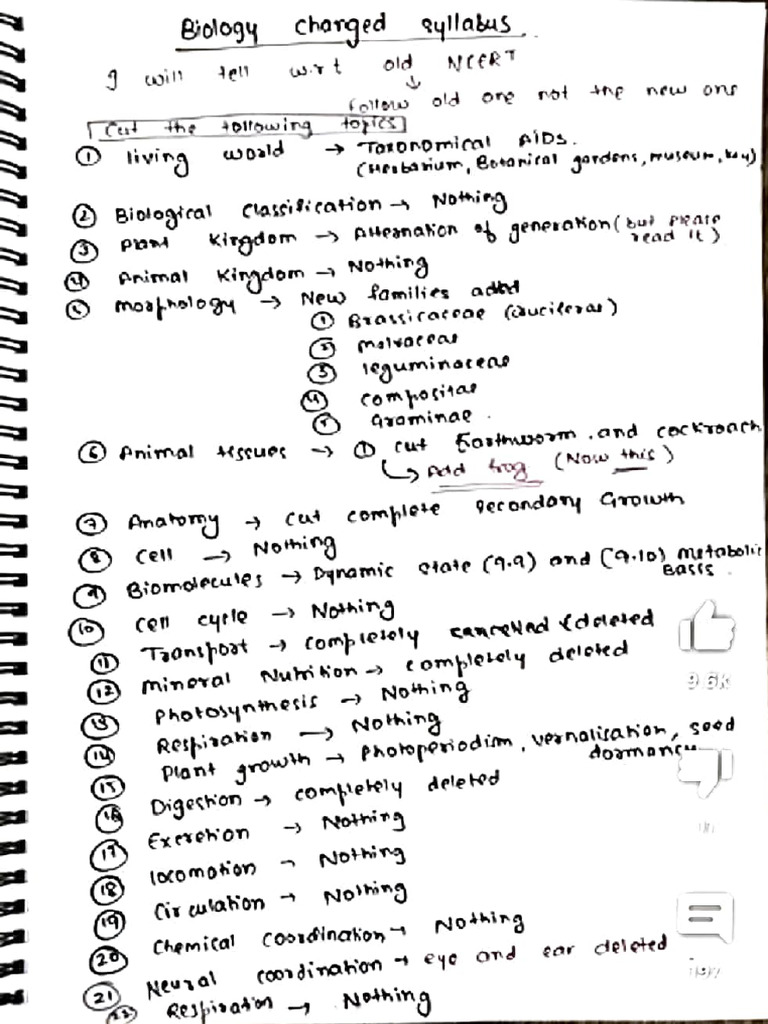 Biology charged syllabus
I will tell w.r.t old NCERT
follow old one not the new one
Cut the following topics
① living world → Taxonomical AIDS.
(Herbarium, Botanical gardens, museum, key)
② Biological Classification → Nothing
③ Plant Kingdom → Alternation of generation (but please read it)
④ Animal Kingdom → Nothing
⑤ Morphology → New families added
① Brassicaceae (cruciferae)
② malvaceae
③ leguminaceae
④ compositae
⑤ Graminae.
⑥ Animal tissues → ① cut Earthworm and cockroach
↳ Add frog (Now this)
⑦ Anatomy → cut complete secondary Growth
⑧ Cell → Nothing
⑨ Biomolecules → Dynamic state (9.9) and (9.10) metabolic Basis.
⑩ Cell cycle → Nothing
⑪ Transport → completely cancelled & deleted
⑫ Mineral Nutrition → completely deleted
⑬ Photosynthesis → Nothing
⑭ Respiration → Nothing
⑮ Plant growth → Photoperiodism, vernalisation, seed dormancy
⑯ Digestion → completely deleted
⑰ Excretion → Nothing
⑱ locomotion → Nothing
⑲ Circulation → Nothing
⑳ Chemical coordination → Nothing
㉑ Neural coordination → eye and ear deleted
㉒ Respiration → Nothing
9.6K